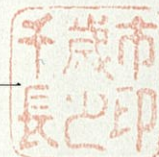 千歳市
長之印